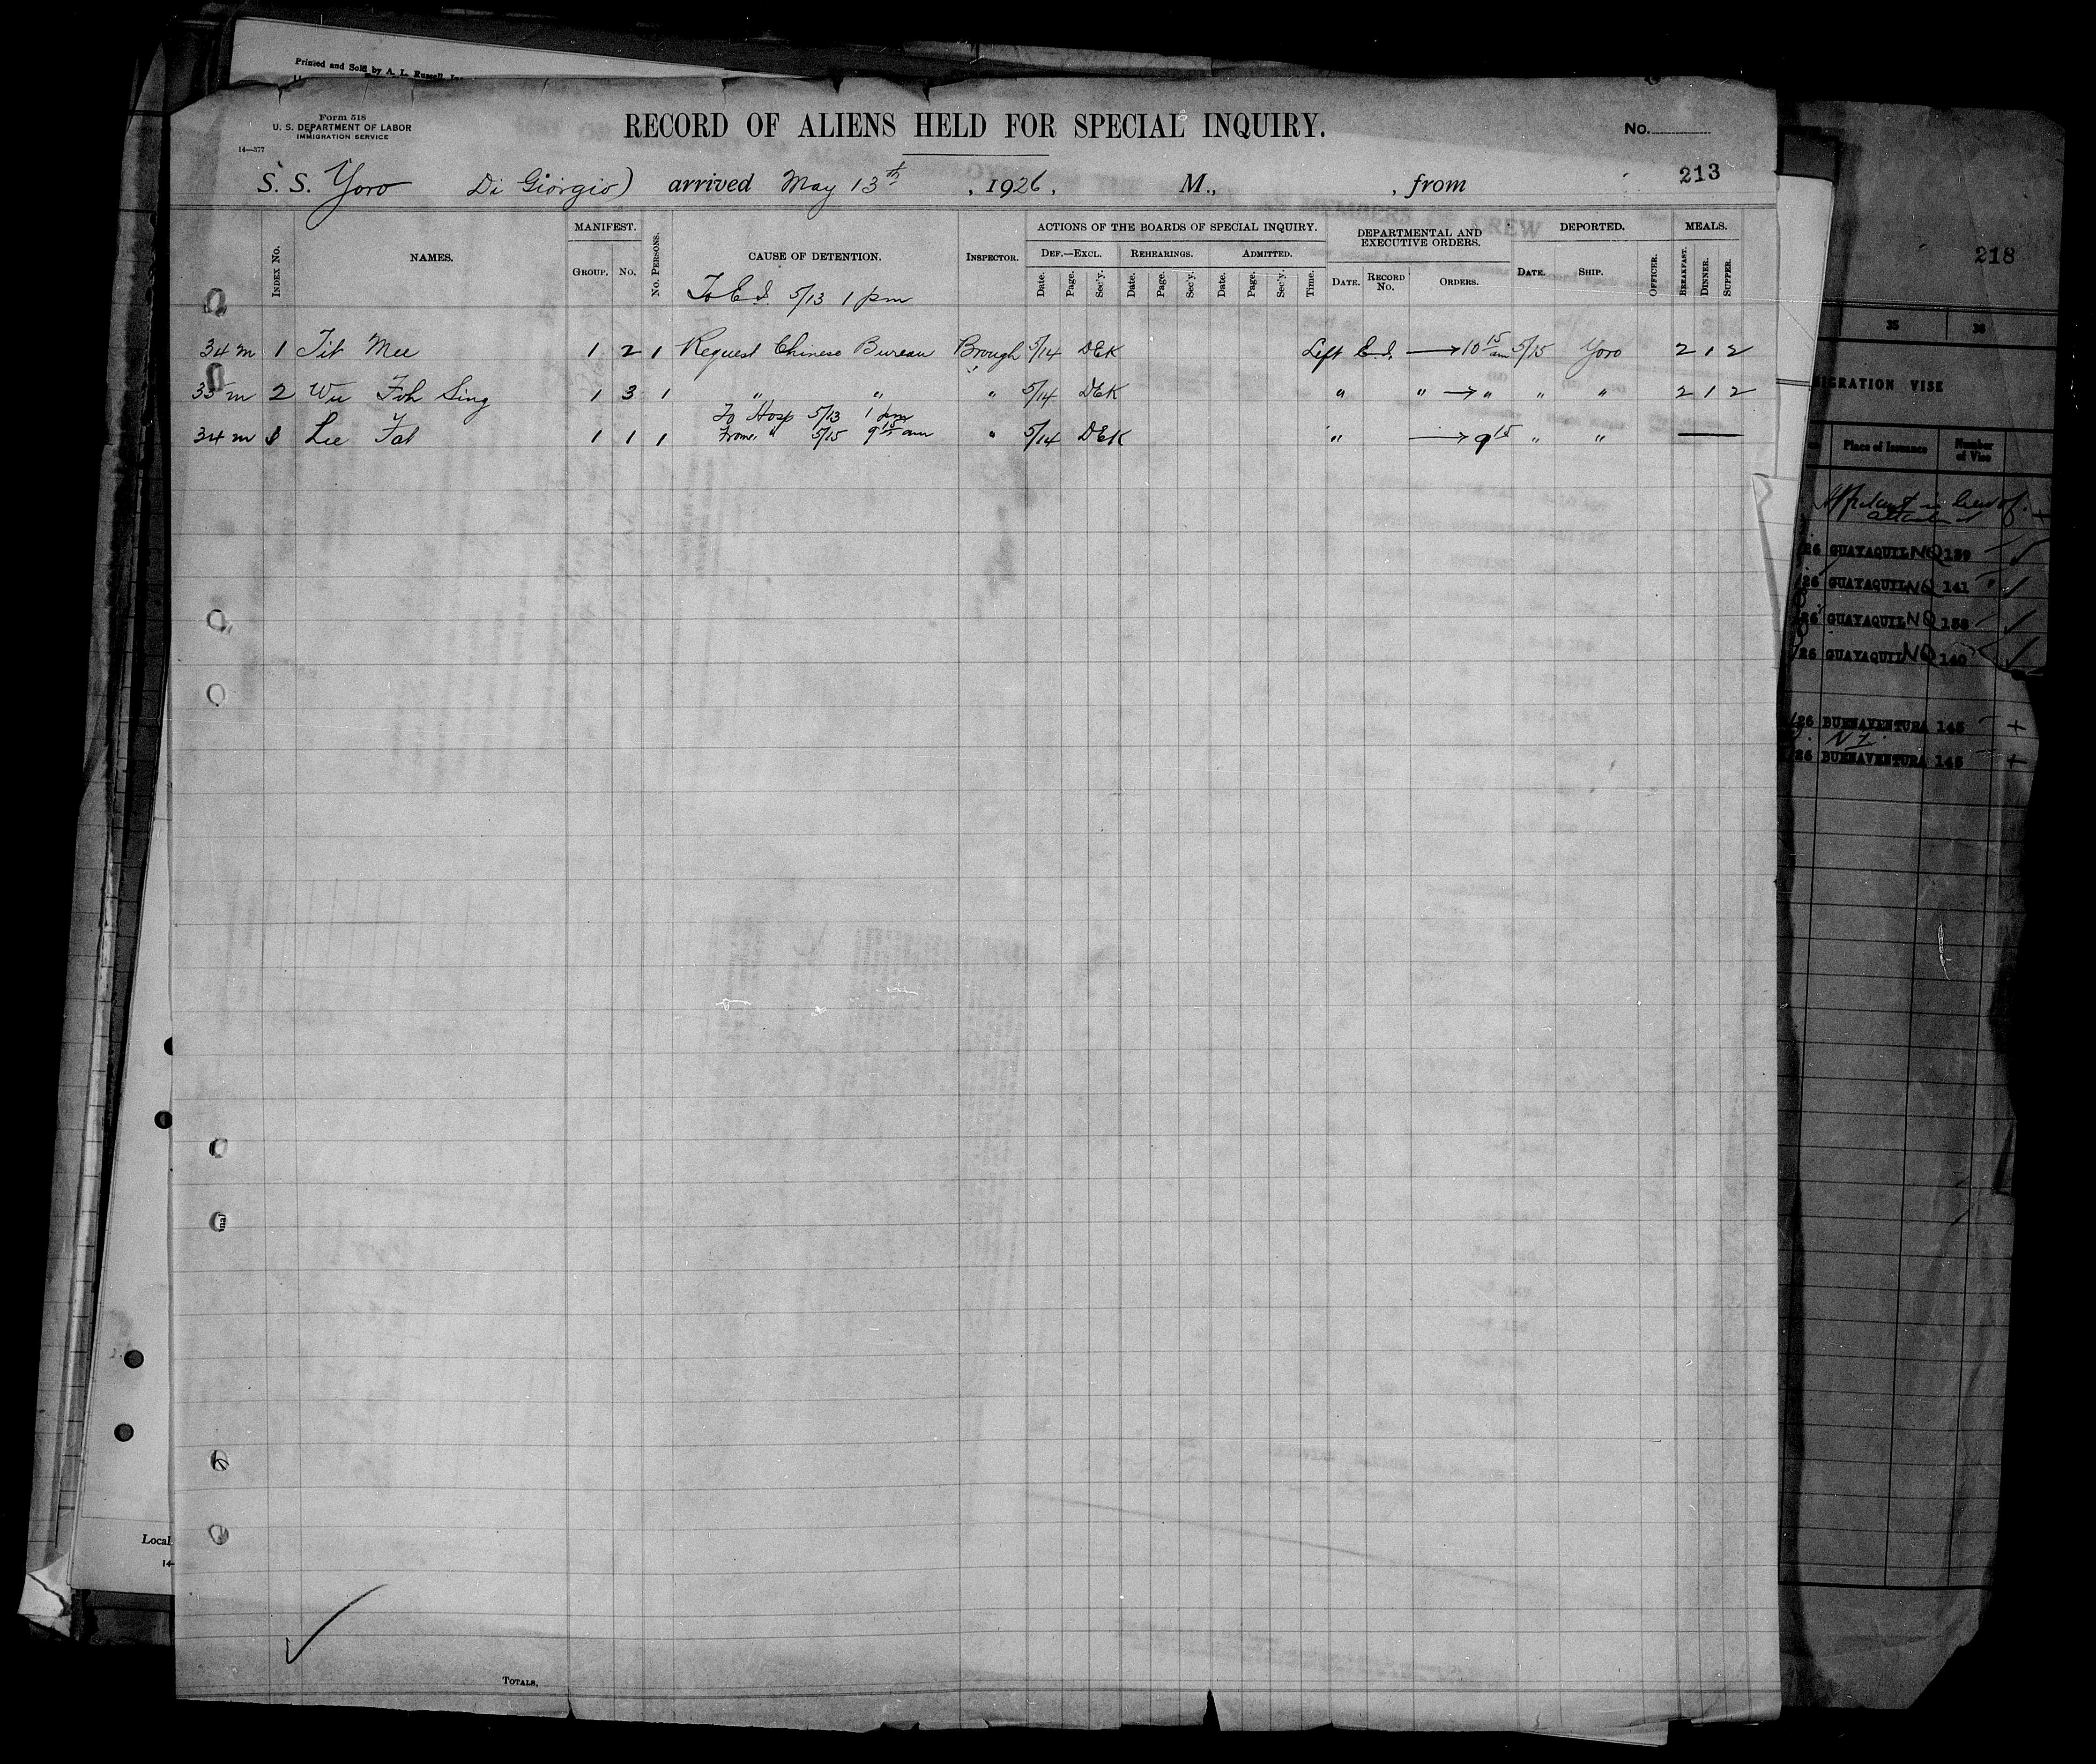 Printed and Sold by A. L. Russell, Inc.
Form 518
U. S. DEPARTMENT OF LABOR
IMMIGRATION SERVICE
14—377
RECORD OF ALIENS HELD FOR SPECIAL INQUIRY.
No.
213
S. S. Yoro Di Giorgio) arrived May 13th, 1926, M., , from
INDEX No. NAMES. MANIFEST. GROUP. No. No. PERSONS. CAUSE OF DETENTION. INSPECTOR. ACTIONS OF THE BOARDS OF SPECIAL INQUIRY. DEF.—EXCL. Date. Page. Sec'y. REHEARINGS. Date. Page. Sec'y. ADMITTED. Date. Page. Sec'y. Time. DEPARTMENTAL AND EXECUTIVE ORDERS. DATE. RECORD No. ORDERS. DEPORTED. DATE. SHIP. OFFICER. MEALS. BREAKFAST. DINNER. SUPPER.
To E.I. 5/13 1 pm
34 m 1 Tit Mee 1 2 1 Request Chinese Bureau Brough 5/14 DEK Left E.I. → 10 15 am 5/15 Yoro 2 1 2
35 m 2 Wu Foh Sing 1 3 1 " " " 5/14 DEK " " → " " " 2 1 2
To Hosp 5/13 1 pm
34 m Lee Fat 1 1 1 From " 5/15 9 15 am " 5/14 DEK " → 9 15 " " —
TOTALS,
Local
14—
218
35 36
IGRATION VISE
Place of Issuance Number of Vise
Affidavit in lieu of
26 GUAYAQUIL NQ 139
26 GUAYAQUIL NQ 141
26 GUAYAQUIL NQ 138
26 GUAYAQUIL NQ 140
26 BUENAVENTURA 145
26 BUENAVENTURA 146